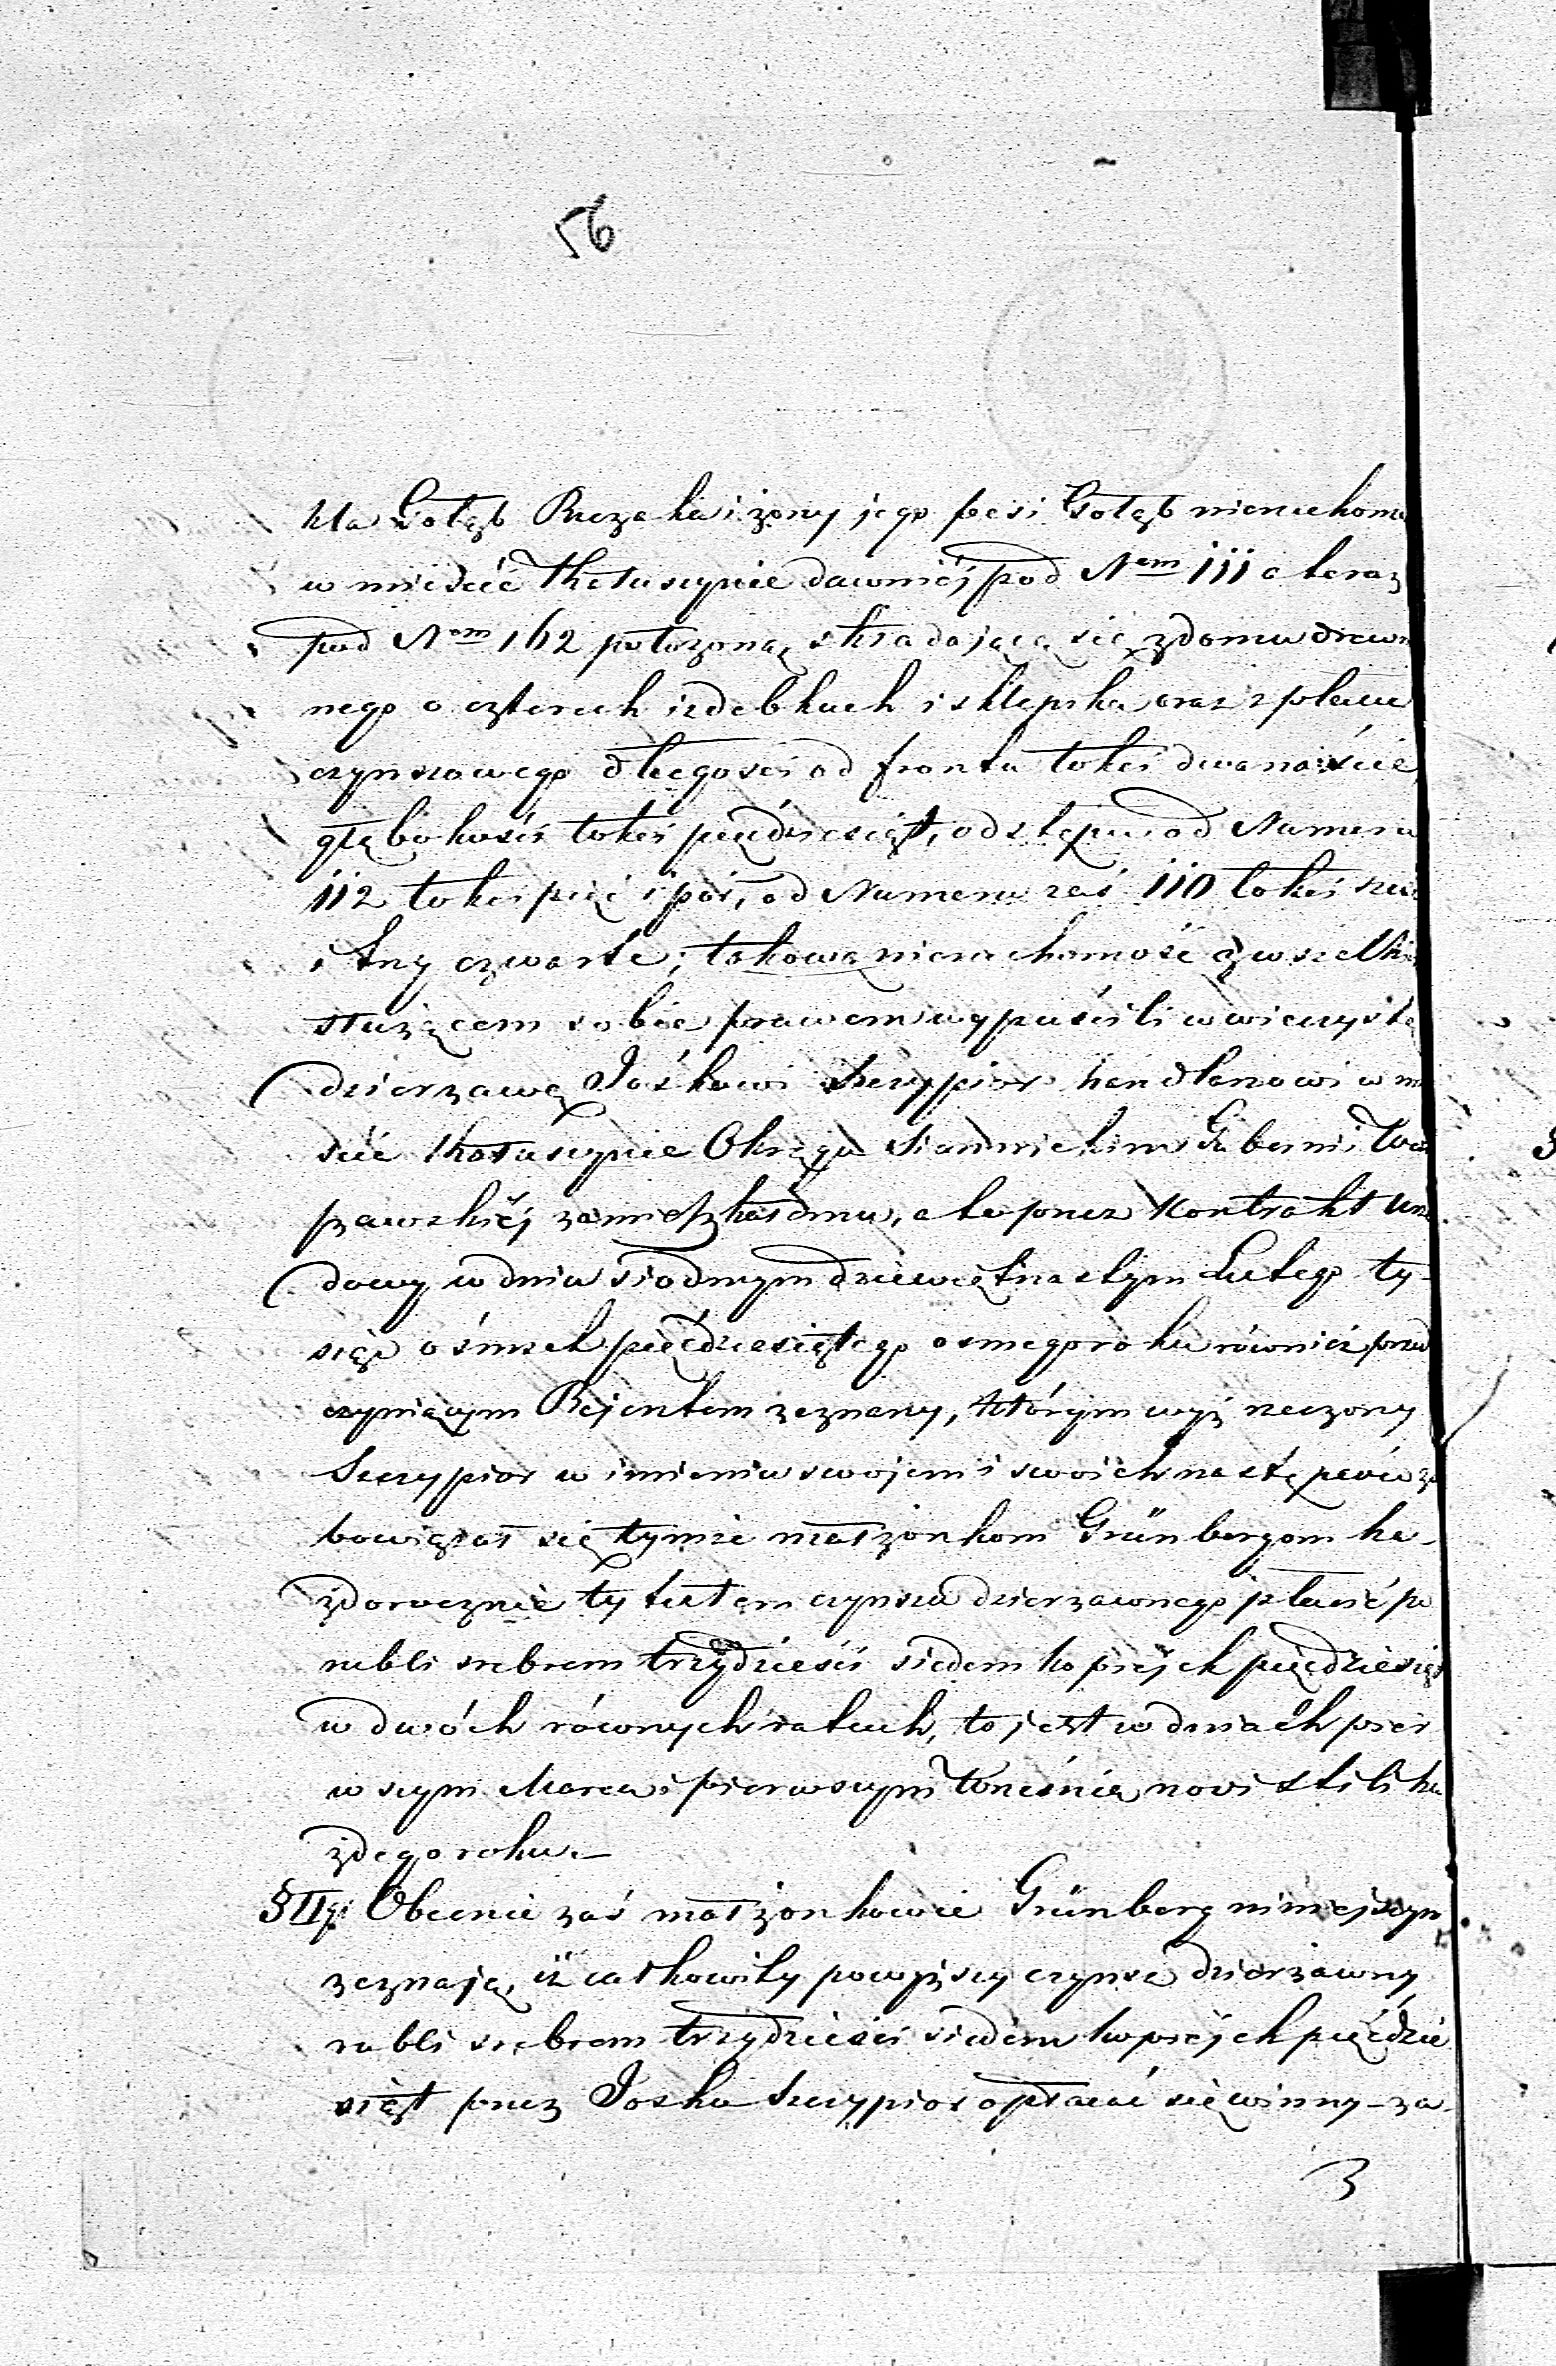 56
kla Gołąb Ruzaka i żony jego Pesi Gołąb nieruchomo
w mieście Kałuszynie dawniéj pod Nem 111 a teraz
pod Nem 162 położoną składającą się z domu drew
nego o czterech izdebkach i sklepiku oraz z placu
czynszowego długości od frontu łokci dwanaście
głębokości łokci pięćdziesiąt, odstępu od Numeru
112 łokci pięć i pół, od Numeru zaś 110 łokci sześć
i trzy czwarte; takową nieruchomość z wszelkim
służącem sobie prawem wypuścili w wieczystą
dzierzawę Joskowi Szczypior handlarzowi w mie
ście Kałuszynie Okręgu Siennickim Gubernii War
szawskiéj zamieszkałemu, a to przez Kontrakt Urzę
dowy w dniu siodmym dziewiętnastym Lutego ty-
siąc ośmset pięćdziesiątego osmego roku również przed
czyniącym Rejentem zeznany, którym wyż rzeczony
Szczypior w imieniu swojem i swoich następców zo
bowiązał się tymże małżonkom Grünbergom ka-
żdorocznie tytułem czynszu dzierzawnego płacić po
rubli srebrem trzydzieści siedem kopiejek pięćdziesiąt
w dwóch równych ratach, to jest w dniach pier
wszym Marca i pierwszym Września novi stili ka
żdego roku.—
§ IIgi Obecnie zaś małżonkowie Grünberg niniejszym
zeznają, iż całkowity powyższy czynsz dzierzawny
rubli srebrem trzydzieści siedem kopiejek pięćdzie
siąt przez Joska Szczypior opłacać się winny – za-
3